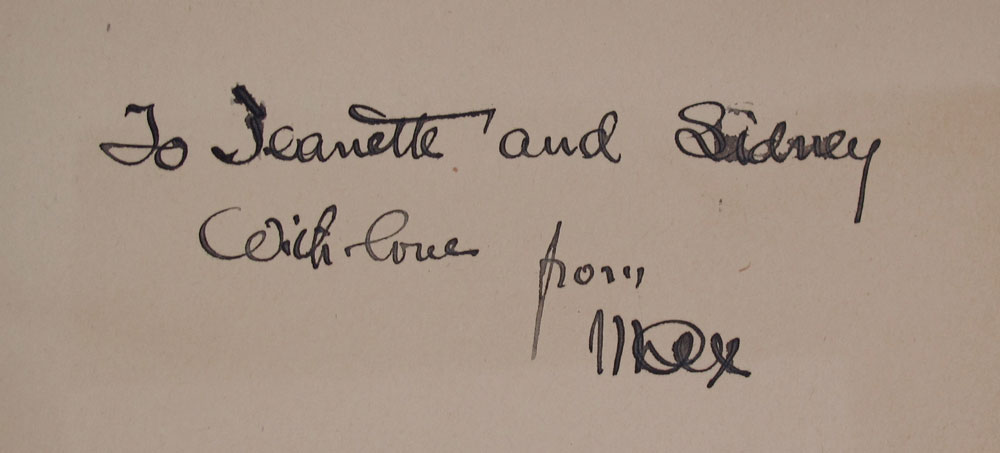 To Jeanette and Sidney
With love from
Max